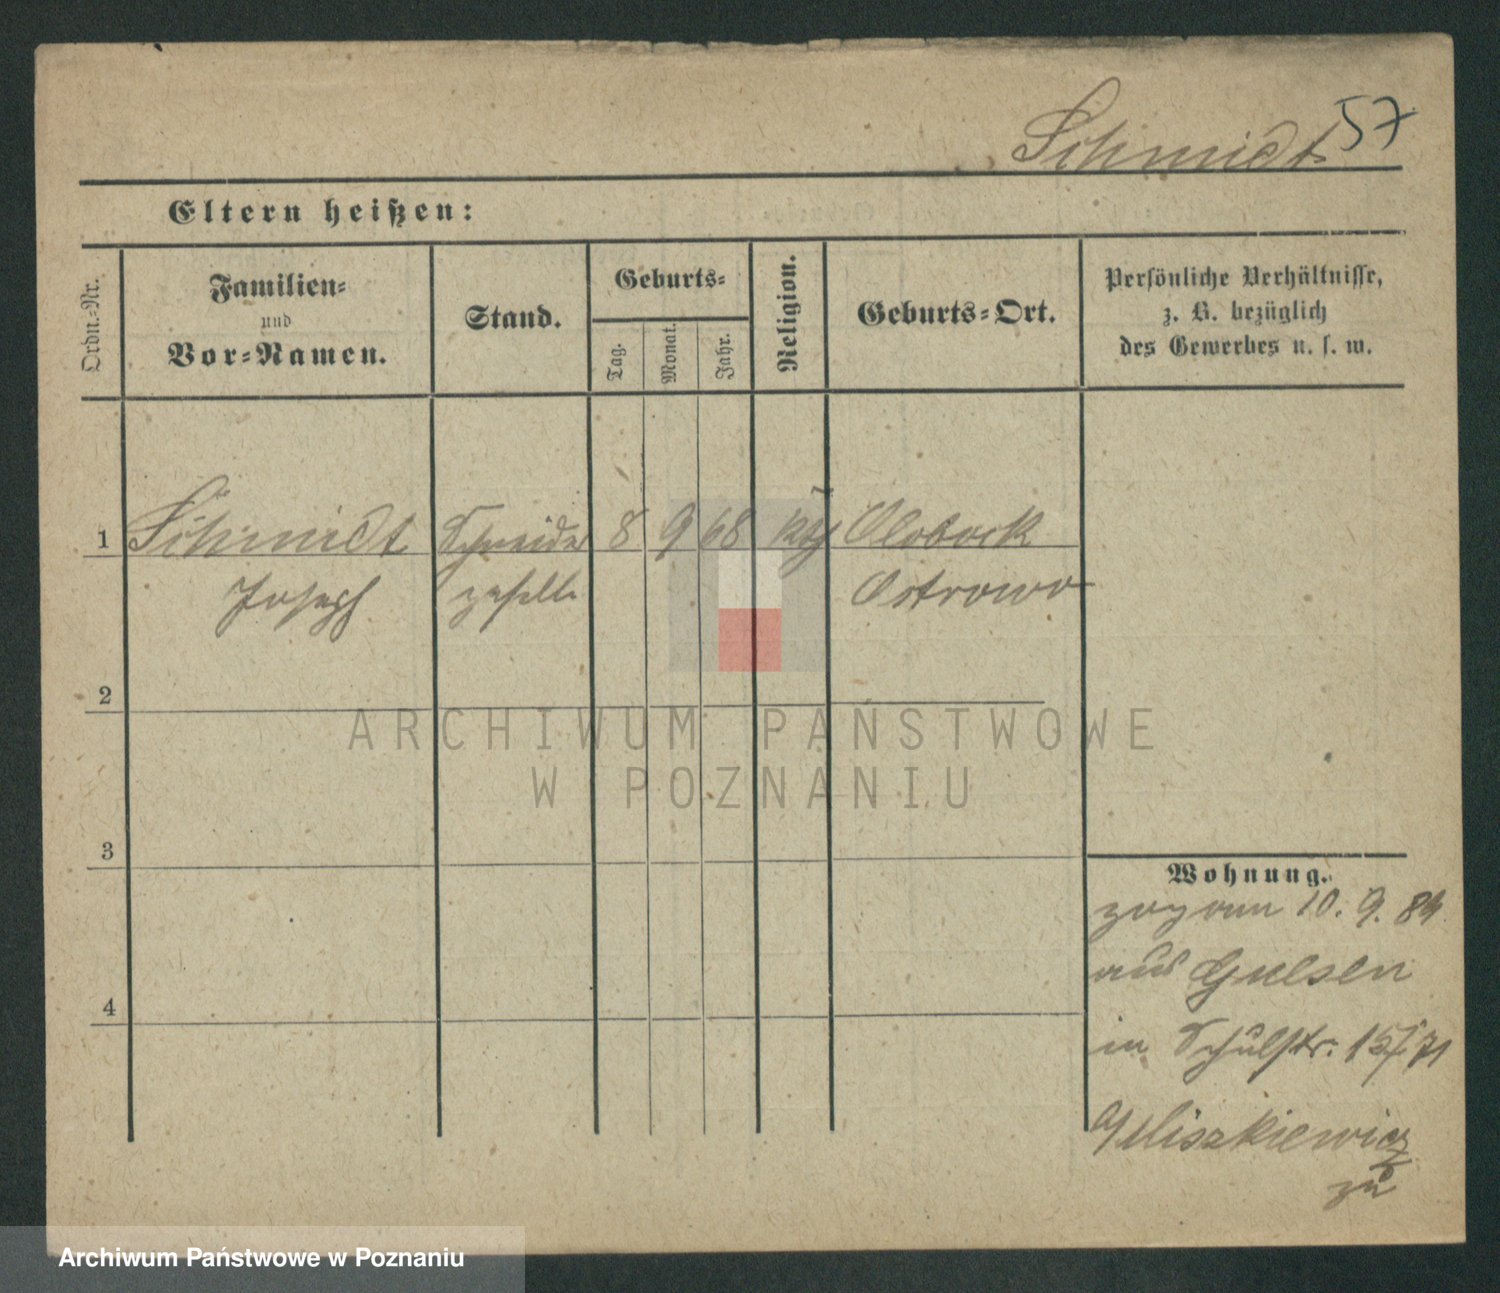 Schmidt 57
Eltern heißen:
Ordn.-Nr.
Familien-
und
Vor-Namen.
Stand.
Geburts-
Tag.
Monat.
Jahr.
Religion.
Geburts-Ort.
Persönliche Verhältnisse,
z. B. bezüglich
des Gewerbes u. s. w.
1 Schmidt Schneider 8 9 68 kth Olobock
Joseph geselle Ostrowo
2
3
4
Wohnung.
zog am 10. 9. 89
aus
in Schulstr. 15/71
Miszkiewicz
zu
ARCHIWUM PAŃSTWOWE
W POZNANIU
Archiwum Państwowe w Poznaniu